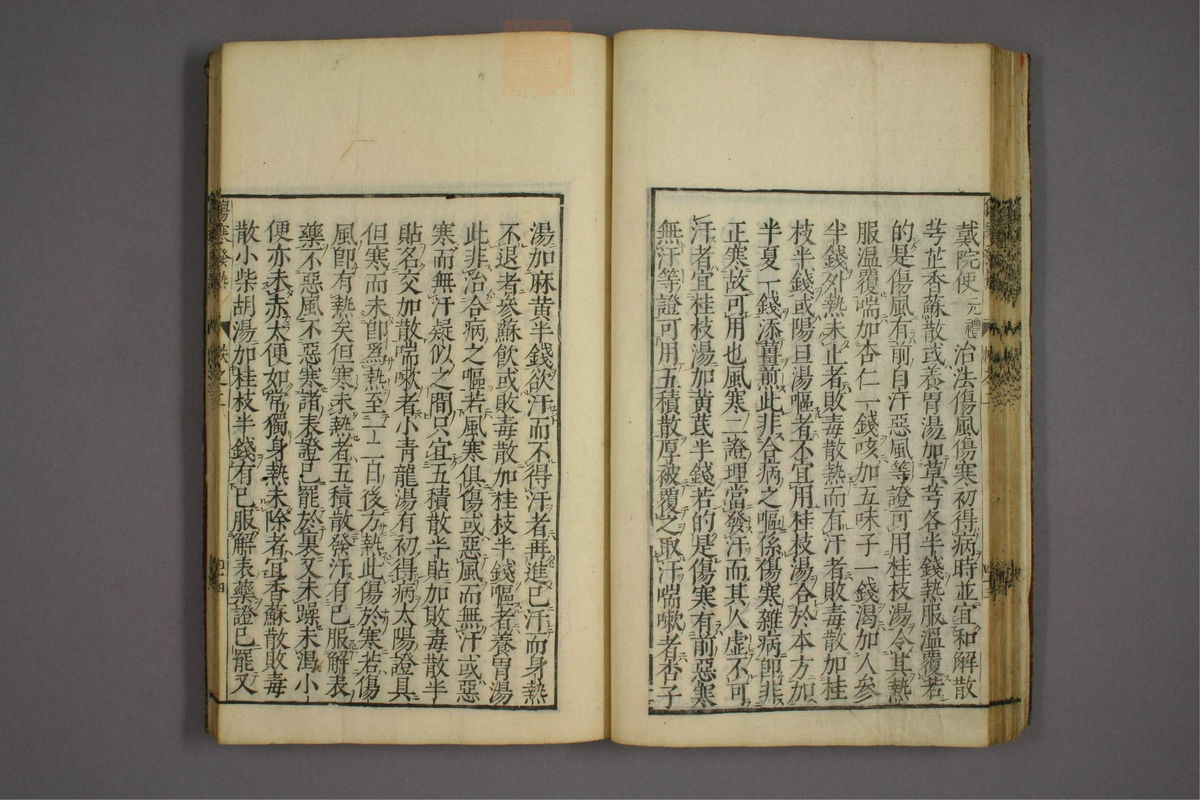 戴院使元禮治法傷風傷寒初得病時並宜和解散
芎芷香蘇散或養胃湯加草芎各半錢熱服溫覆若
的是傷風有前自汗惡風等證可用桂枝湯令其熱
服溫覆喘加杏仁一錢咳加五味子一錢渴加人參
半錢外熱未止者敗毒散熱而有汗者敗毒散加桂
枝半錢或陽旦湯嘔者不宜用桂枝湯合於本方加
半夏一錢添薑煎此非合病之嘔係傷寒雜病即非
正寒故可用也風寒二證理當發汗而其人虛不可
汗者宜桂枝湯加黃芪半錢若的是傷寒有前惡寒
無汗等證可用五積散厚被覆之取汗喘嗽者杏子
湯加麻黃半錢欲汗而不得汗者再進已汗而身熱
不退者參蘇飲或敗毒散加桂枝半錢嘔者養胃湯
此非治合病之嘔若風寒俱傷或惡風而無汗或惡
寒而無汗疑似之間只宜五積散半貼加敗毒散半
貼名交加散喘嗽者小青龍湯有初得病太陽證具
但寒而未即爲熱至一二日後方熱此傷於寒若傷
風即有熱矣但寒未熱者五積散發汗有已服解表
藥不惡風不惡寒諸表證已罷於裏又未躁未渴小
便亦未赤大便如常獨身熱未除者宜香蘇散敗毒
散小柴胡湯加桂枝半錢有已服解表藥證已罷又
傷寒
四十四